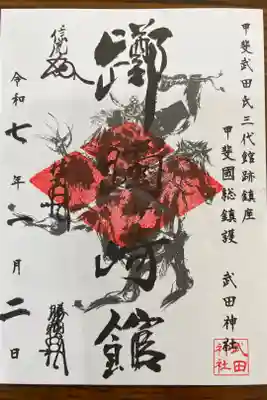 甲斐武田氏三代館跡鎮座
甲斐國総鎮護 武田神社
武田
神社
躑躅崎館
信虎
勝頼
令和七年一月二日